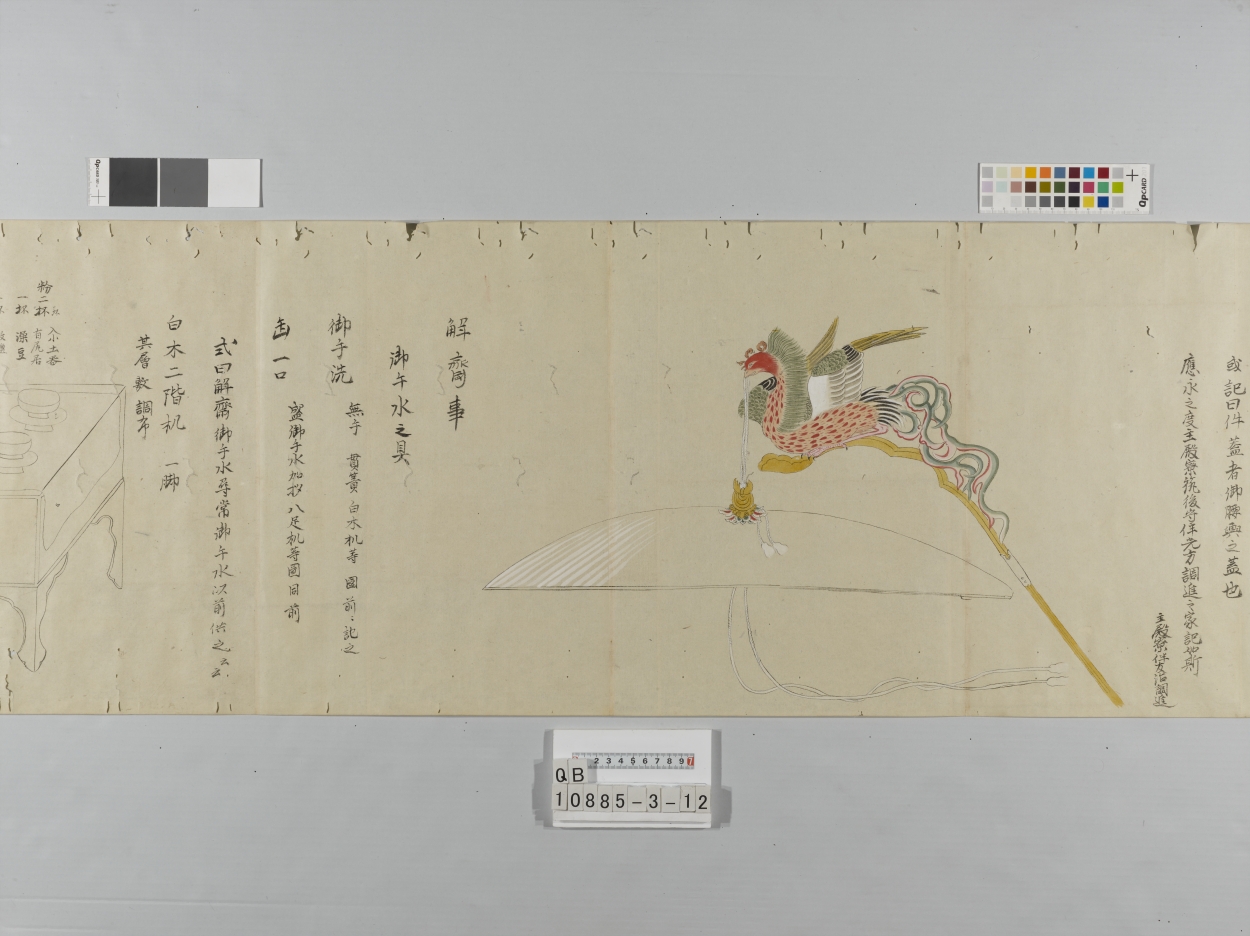 或記曰件蓋者御腰輿之蓋也
應永之度主殿寮筑後守伴先方調進之家記如斯
主殿寮伴友治調進
解齋事
御手水之具
御手洗
無手 貫簀 白木机等 図前ニ記之
缶一口
盛御手水加杓八足机等図同前
式曰解齋御手水尋常御手水以前供之云云
白木二階机 一脚
其層敷調布
粉二杯
一杯 澡豆
QB
10885-3-12